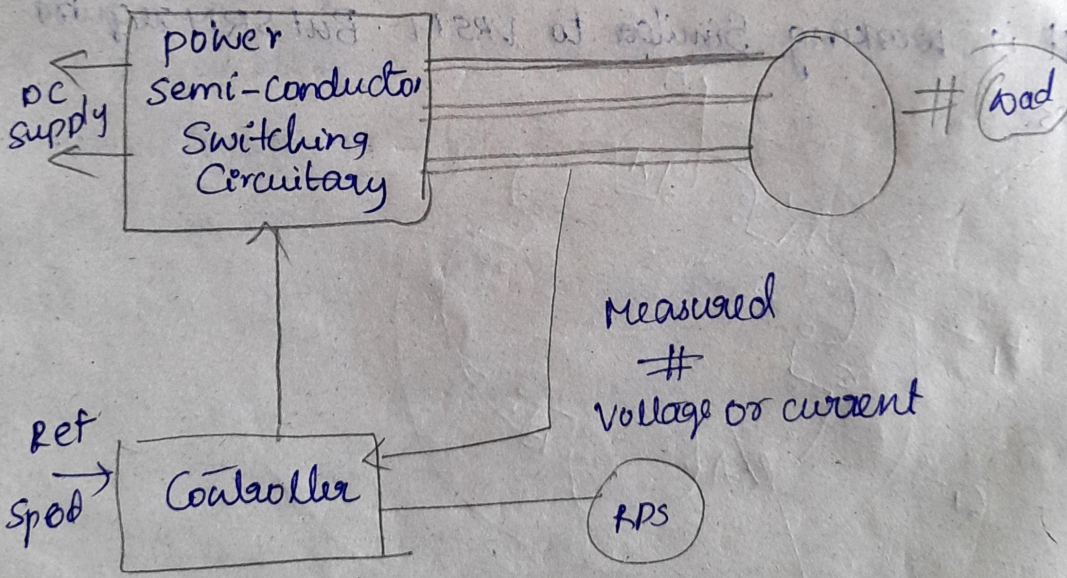 power
semi-conductor
Switching
Circuitary
DC
Supply
#
Load
Measured
#
Voltage or current
Ref
Sped
Controller
RPS